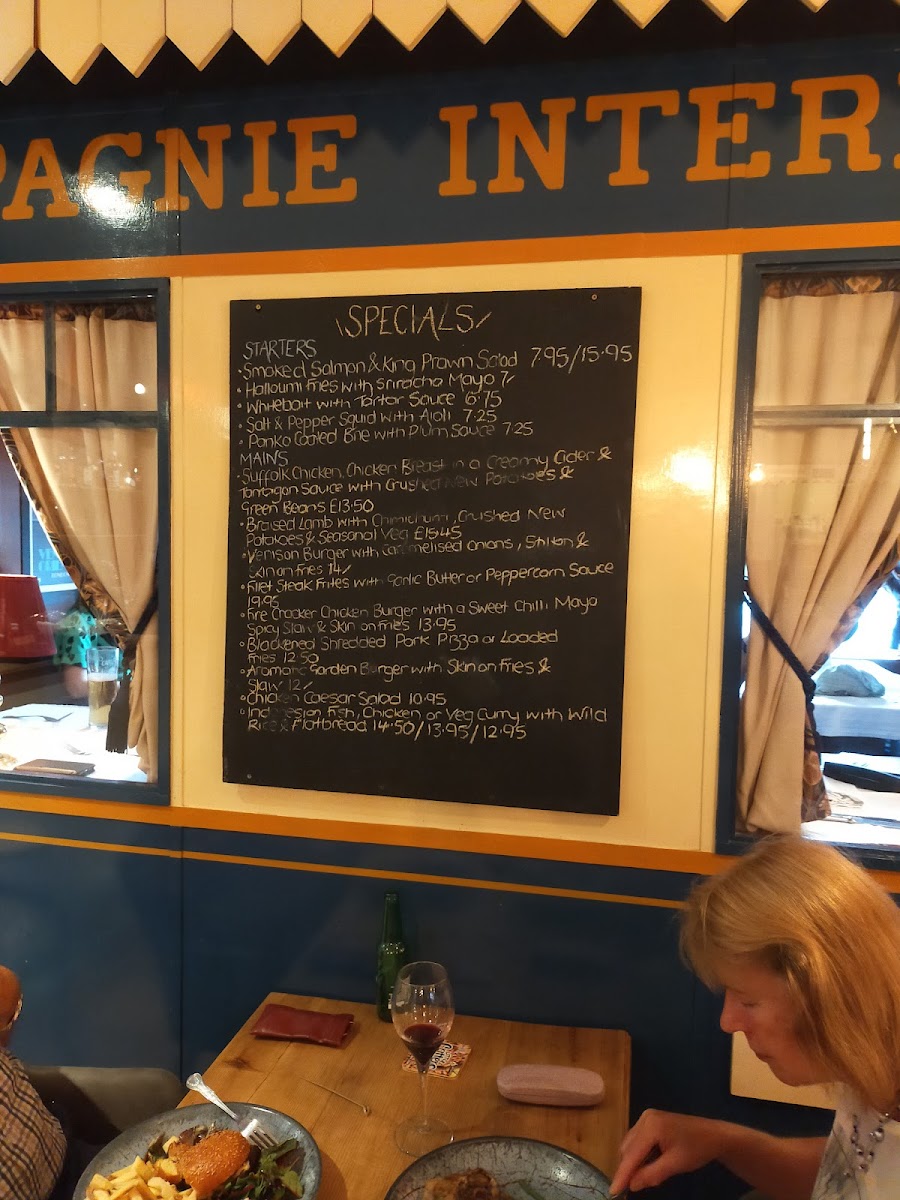 PAGNIE INTER
\SPECIALS/
STARTERS
• Smoked Salmon & King Prawn Salad 7.95/15.95
• Halloumi Fries with Sriracha Mayo 7/
• Whitebait with Tartar Sauce 6.75
• Salt & Pepper Squid with Aioli 7.25
• Panko Coated Brie with Plum Sauce 7.25
MAINS
• Suffolk Chicken, Chicken Breast in a Creamy Cider &
Tarragon Sauce with Crushed New Potatoes &
Green Beans £13.50
• Braised Lamb with Chimichurri, Crushed New
Potatoes & Seasonal Veg £15.45
• Venison Burger with Caramelised Onions, Stilton &
Skin on Fries 14/
• Fillet Steak Frites with Garlic Butter or Peppercorn Sauce
19.95
• Fire Cracker Chicken Burger with a Sweet Chilli Mayo
Spicy Slaw & Skin on Fries 13.95
• Blackened Shredded Pork Pizza or Loaded
Fries 12.50
• Aromatic Garden Burger with Skin on Fries &
Slaw 12/
• Chicken Caesar Salad 10.95
• Indonesian Fish, Chicken or Veg Curry with Wild
Rice & Flatbread 14.50/13.95/12.95